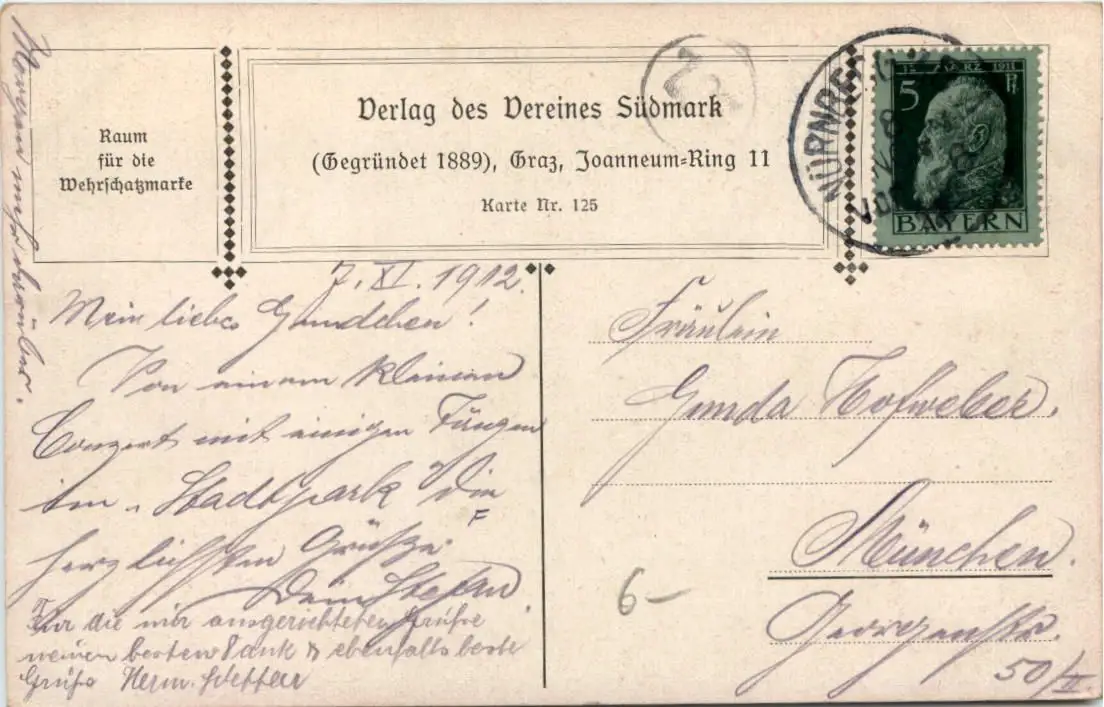 Raum
für die
Wehrschatzmarke
Verlag des Vereines Südmark
(Gegründet 1889), Graz, Joanneum-Ring 11
Karte Nr. 125
NÜRNBERG
8
VOR
12. MÄRZ 1911
5 Pf.
BAYERN
7. XI. 1912.
Mein liebes Gundchen!
Von einem kleinen
Conzert mit einigen Jüngen
im "Stadtpark" die
herzlichsten Grüsse
Dein Stefan.
Für die mir ausgerichteten Grüsse
meinen besten Dank & ebenfalls beste
Grüße Herm.
Morgen mehr darüber.
Fräulein
Gunda Hofweber.
München.
Georgenstr.
50/II
6-